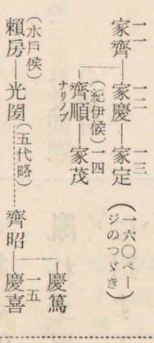 一一 一二 一三
家齊―家慶―家定 (一六〇ページのつゞき)
(紀伊侯) 一四
齊順―家茂
ナリノブ
(水戸侯)
頼房―光圀(五代略)齊昭 慶篤
一五
慶喜